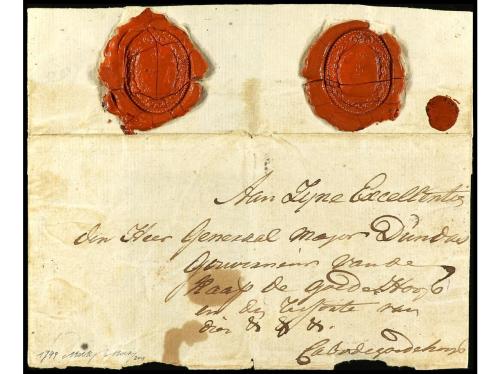 Aan Zyne Excellentie
den Heer Generaal Major Dundas
Gouverneur van de
Kaap de Goede Hoop
en dies van
dier & & &.
Cabodegoedehoop
1799